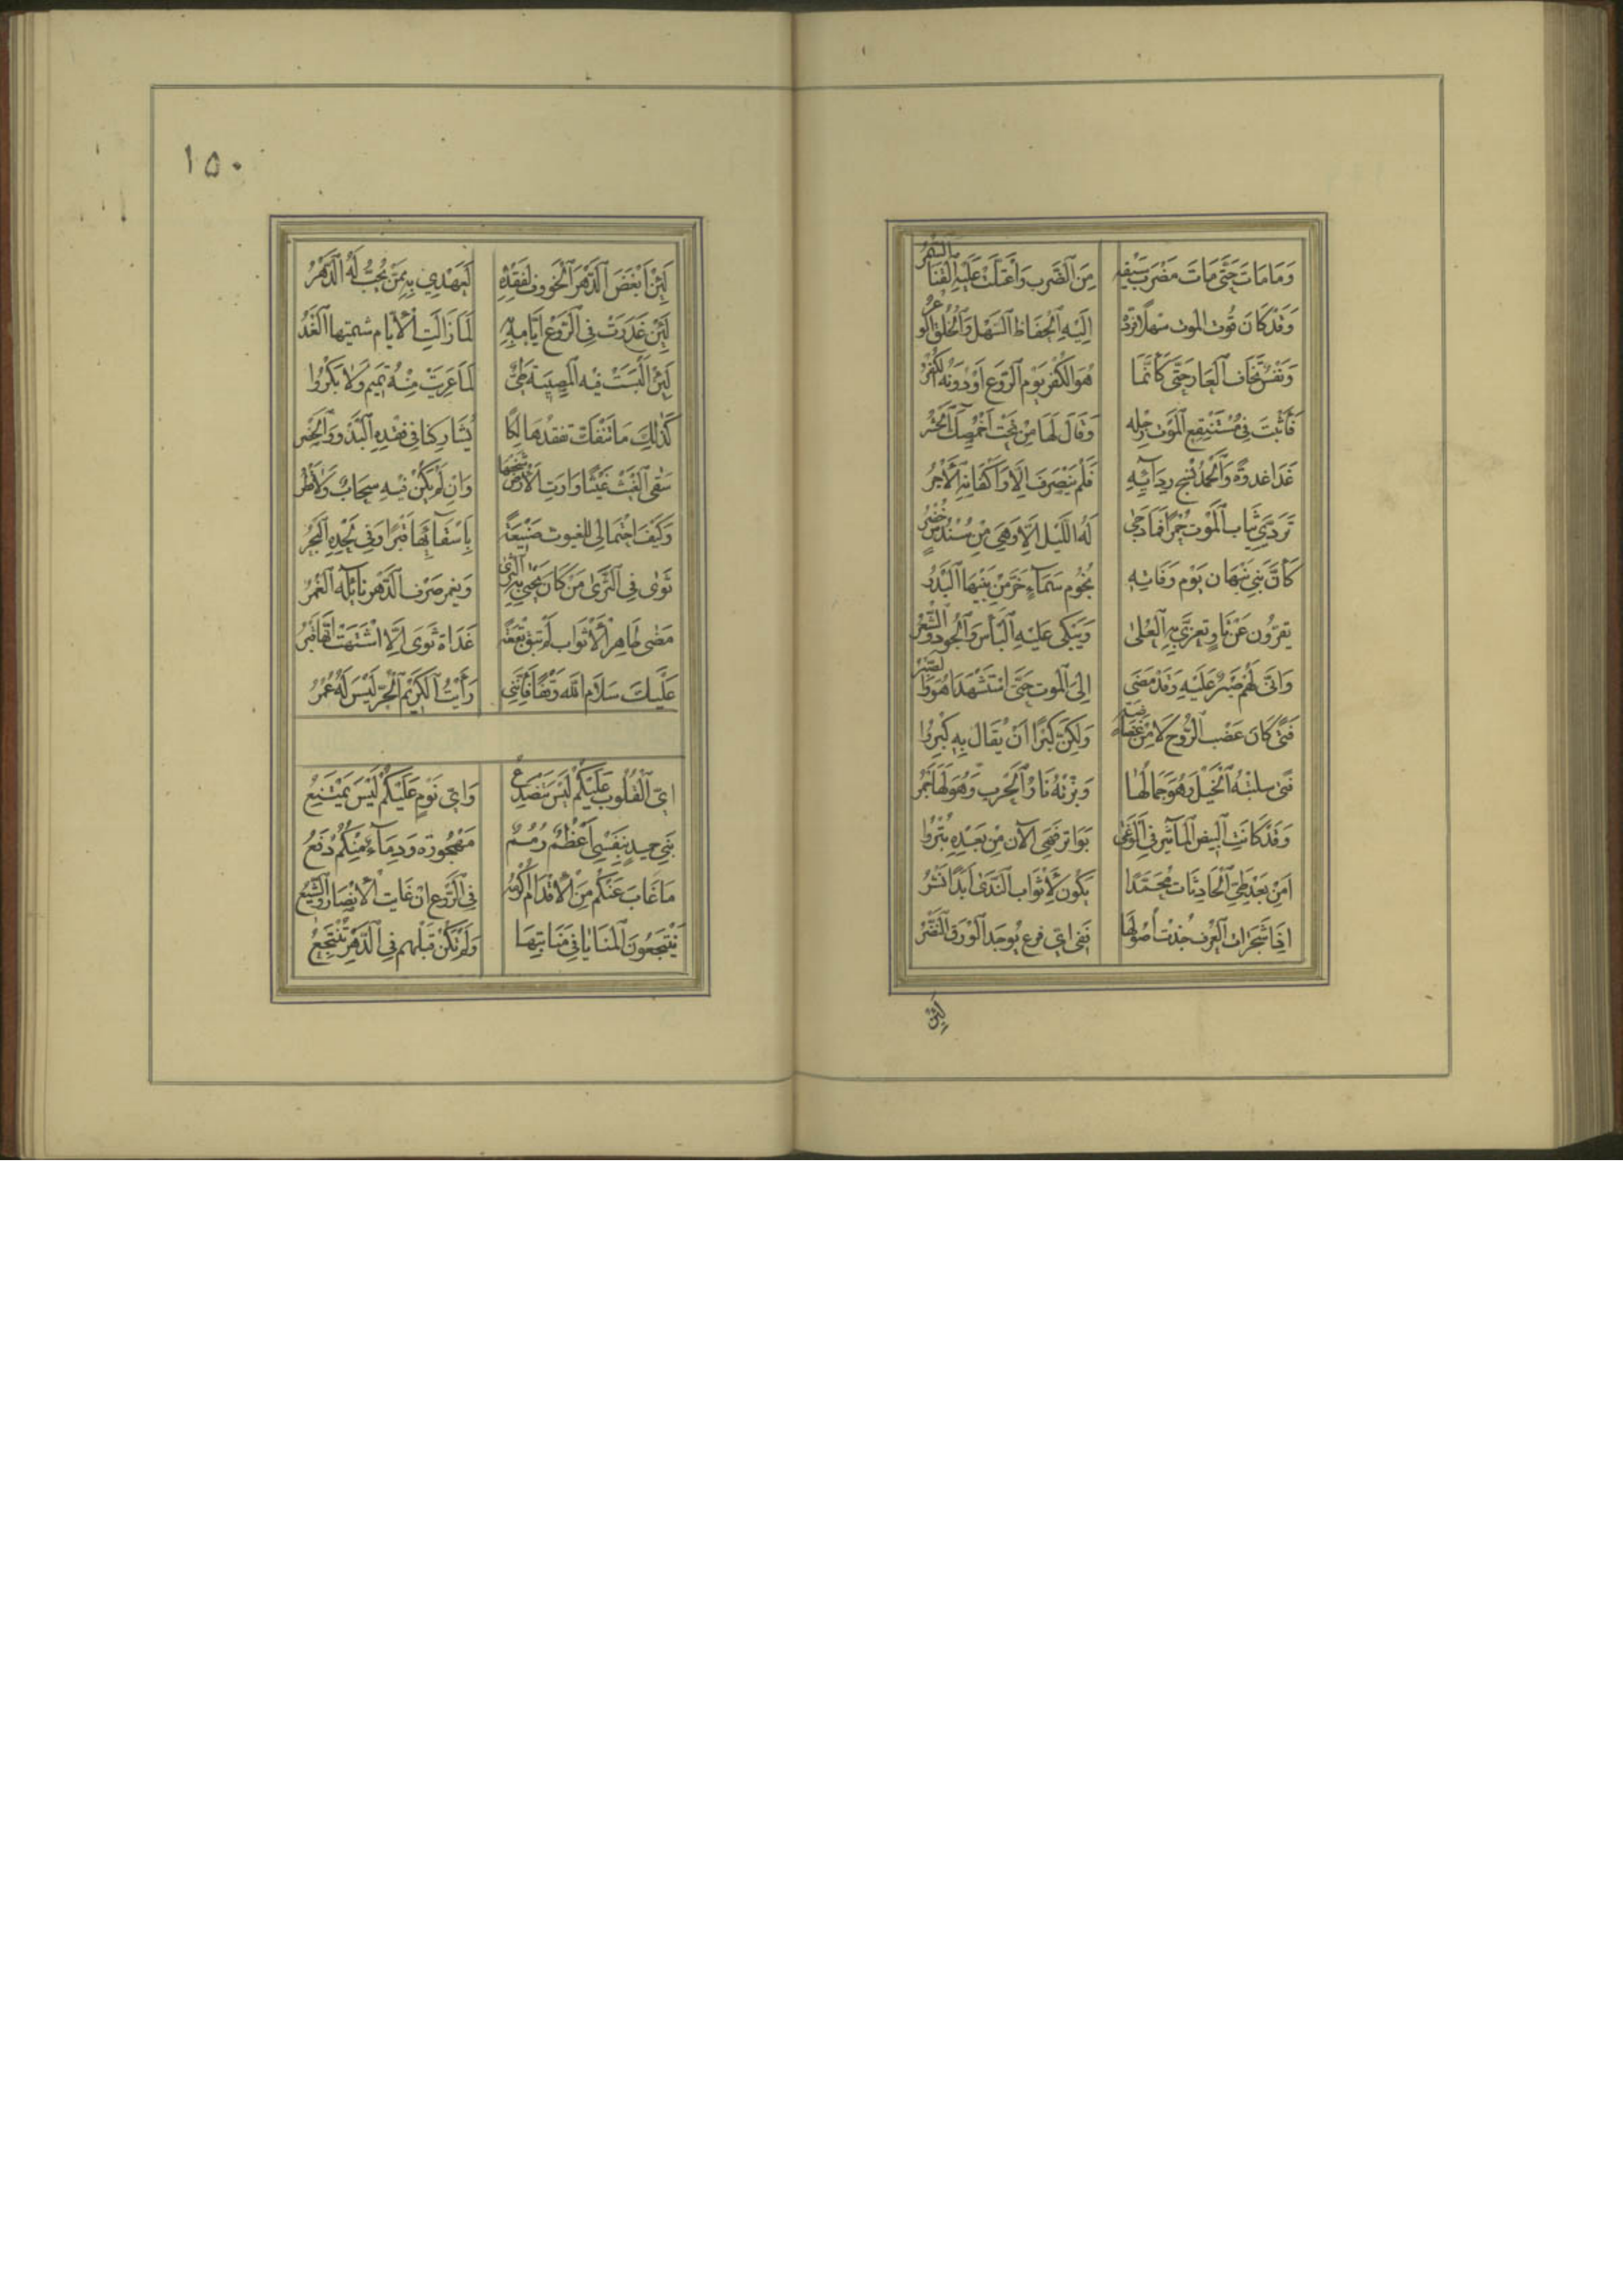 وَمَا مَاتَ حَتَّى مَاتَ مَضْرَبُ سَيْفِهِ مِنَ الضَّرْبِ وَاعْتَلَّتْ عَلَيْهِ الْقَنَا السُّمْرُ
وَقَدْ كَانَ فَوْتُ الْمَوْتِ سَهْلًا فَرَدَّهُ إِلَيْهِ الْحِفَاظُ السَّهْلُ وَالْخُلُقُ الْوَعْرُ
وَنَفْسٌ تَخَافُ الْعَارَ حَتَّى كَأَنَّمَا هُوَ الْكُفْرُ يَوْمَ الرَّوْعِ أَوْ دُونَهُ الْكُفْرُ
فَأَثْبَتَ فِي مُسْتَنْقَعِ الْمَوْتِ رِجْلَهُ وَقَالَ لَهَا مِنْ تَحْتِ أَخْمَصِكِ الْحَشْرُ
غَدَا غَدْوَةً وَالْحَمْدُ نَسْجُ رِدَائِهِ فَلَمْ يَنْصَرِفْ إِلَّا وَأَكْفَانُهُ الْأَجْرُ
تَرَدَّى ثِيَابَ الْمَوْتِ حُمْرًا فَمَا دَجَى لَهُ اللَّيْلُ إِلَّا وَهْيَ مِنْ سُنْدُسٍ خُضْرُ
كَأَنَّ بَنِي نَبْهَانَ يَوْمَ وَفَاتِهِ نُجُومُ سَمَاءٍ خَرَّ مِنْ بَيْنِهَا الْبَدْرُ
يُعَزَّوْنَ عَنْ ثَاوٍ تُعَزَّى بِهِ الْعُلَى وَيَبْكِي عَلَيْهِ الْبَأْسُ وَالْجُودُ وَالشِّعْرُ
وَأَنَّى لَهُمْ صَبْرٌ عَلَيْهِ وَقَدْ مَضَى إِلَى الْمَوْتِ حَتَّى اسْتُشْهِدَا هُوَ وَالصَّبْرُ
فَتًى كَانَ عَذْبَ الرُّوحِ لَا مِنْ غَضَاضَةٍ وَلَكِنَّ كِبْرًا أَنْ يُقَالَ بِهِ كِبْرُ
فَتًى سَلَبَتْهُ الْخَيْلُ وَهْوَ جَمَالٌ لَهَا وَبَزَّتْهُ نَارُ الْحَرْبِ وَهْوَ لَهَا جَمْرُ
وَقَدْ كَانَتِ الْبِيضُ الْمَآثِيرُ فِي الْوَغَى بَوَاتِرَ فَهْيَ الْآنَ مِنْ بَعْدِهِ بُتْرُ
أَمِنْ بَعْدِ طَيِّ الْحَادِثَاتِ مُحَمَّدًا يَكُونُ لِأَثْوَابِ النَّدَى أَبَدًا نَشْرُ
إِذَا شَجَرَاتُ الْعُرْفِ جُذَّتْ أُصُولُهَا فَفِي أَيِّ فَرْعٍ يُوجَدُ الْوَرَقُ النَّضْرُ
لَئِنْ
١٥٠
لَئِنْ أَبْغَضَ الدَّهْرَ الْخَؤُونَ لِفَقْدِهِ لَيَعْهَدِي بِهِ مِمَّنْ يُحَبُّ لَهُ الدَّهْرُ
لَئِنْ غَدَرَتْ فِي الرَّوْعِ أَيَّامُهُ بِهِ لَمَا زَالَتِ الْأَيَّامُ شِيمَتُهَا الْغَدْرُ
لَئِنْ أُلْبِسَتْ فِيهِ الْمُصِيبَةَ طَيٌّ لَمَا عُرِيَتْ مِنْهُ تَمِيمٌ وَلَا بَكْرُ
كَذَلِكَ مَا نَنْفَكُّ نَفْقِدُ هَالِكًا يُشَارِكُنَا فِي فَقْدِهِ الْبَدْوُ وَالْحَضْرُ
سَقَى الْغَيْثُ غَيْثًا وَارَتِ الْأَرْضُ شَخْصَهَا وَإِنْ لَمْ يَكُنْ فِيهِ سَحَابٌ وَلَا قَطْرُ
وَكَيْفَ احْتِمَالِي لِلْغُيُوثِ صَنِيعَةً بِإِسْقَائِهَا قَبْرًا وَفِي لَحْدِهِ الْبَحْرُ
ثَوَى فِي الثَّرَى مَنْ كَانَ يَحْيَى بِهِ الثَّرَى وَيَغْمُرُ صَرْفَ الدَّهْرِ نَائِلُهُ الْغَمْرُ
مَضَى طَاهِرَ الْأَثْوَابِ لَمْ تَبْقَ بُقْعَةٌ غَدَاةَ ثَوَى إِلَّا اشْتَهَتْ أَنَّهَا قَبْرُ
عَلَيْكَ سَلَامُ اللَّهِ وَقْفًا فَإِنَّنِي رَأَيْتُ الْكَرِيمَ الْحُرَّ لَيْسَ لَهُ عُمْرُ
أَيُّ الْقُلُوبِ عَلَيْكُمْ لَيْسَ يَنْصَدِعُ وَأَيُّ نَوْمٍ عَلَيْكُمْ لَيْسَ يَمْتَنِعُ
بَنِي حُمَيْدٍ بِنَفْسِي أَعْظُمٌ رُمُمٌ مَهْجُورَةٌ وَدِمَاءٌ مِنْكُمْ دُفَعُ
مَا غَابَ عَنْكُمْ مِنَ الْأَقْدَامِ أَكْرَمُهُ فِي الرَّوْعِ إِنْ غَابَتِ الْأَنْصَارُ وَالشِّيَعُ
يَنْتَجِعُونَ الْمَنَايَا فِي مَنَابِتِهَا وَلَمْ تَكُنْ قَبْلَهُمْ فِي الدَّهْرِ تُنْتَجَعُ